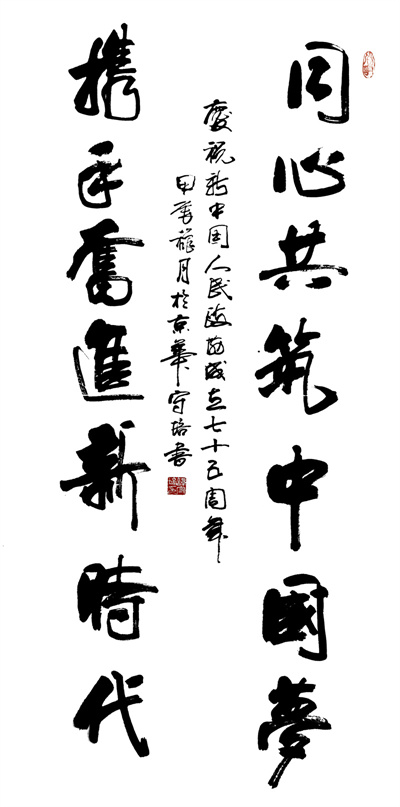 同心共筑中國夢
慶祝新中国人民政成立七十五周年
甲辰穐月於京華守培書
携手奮進新時代